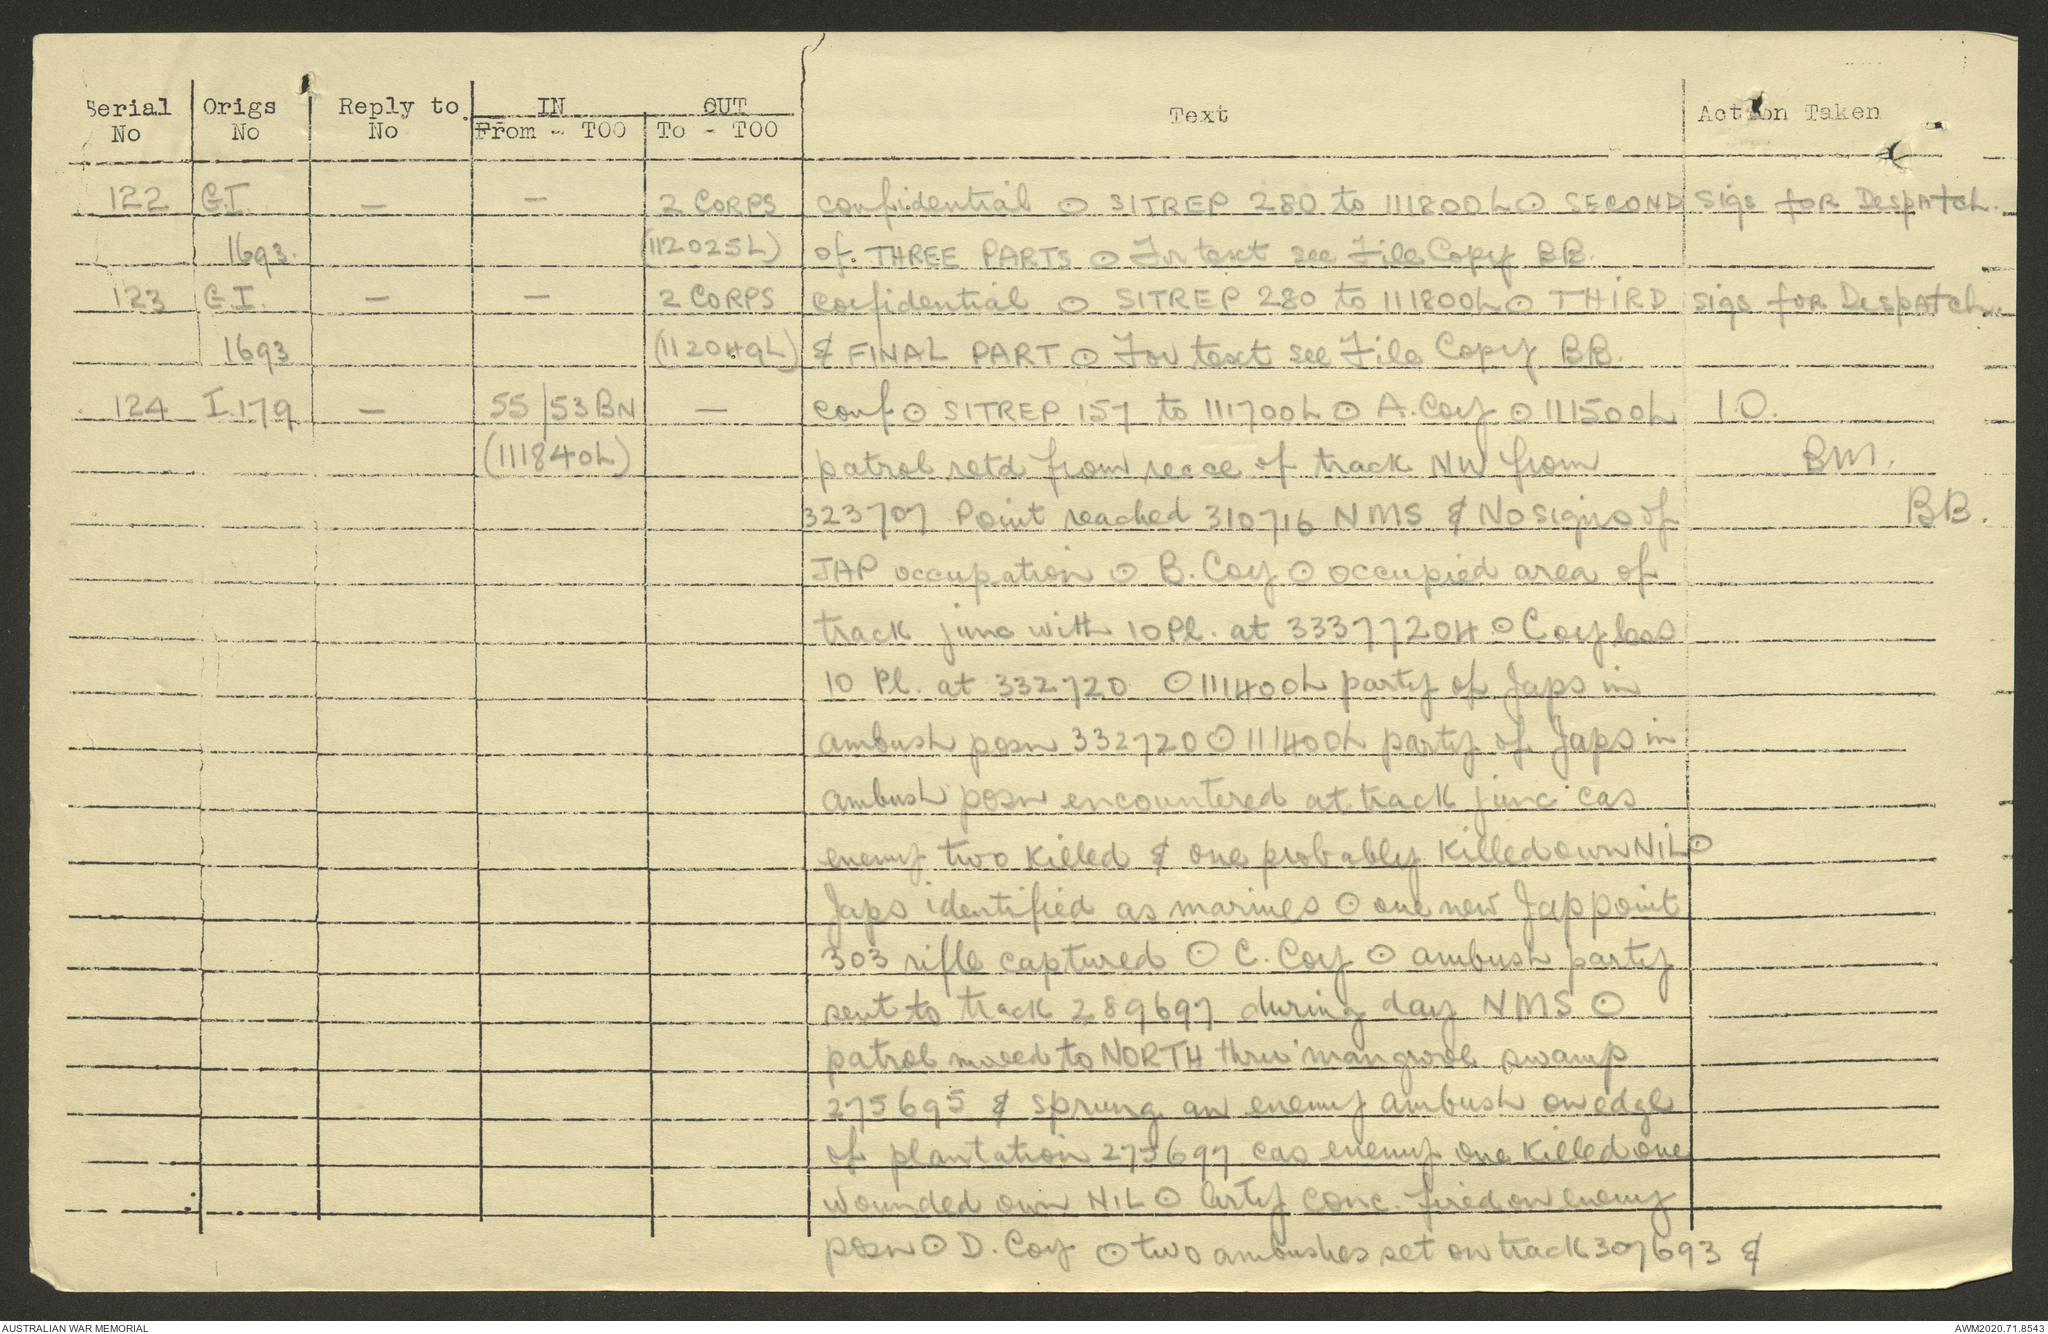 Serial Origs Reply to IN OUT Text Action Taken
No No No From - TOO To - TOO
122 G.I. — — 2 CORPS confidential ⊙ SITREP 280 to 111800L ⊙ SECOND Sigs for Despatch.
1693. (112025L) of THREE PARTS ⊙ For text see File Copy BB.
123 G.I. — — 2 CORPS confidential ⊙ SITREP 280 to 111800L ⊙ THIRD Sigs for Despatch.
1693 (112049L) & FINAL PART ⊙ For text see File Copy BB.
124 I.179 — 55/53 BN — conf ⊙ SITREP 157 to 111700L ⊙ A. Coy ⊙ 111500L I.O.
(111840L) patrol retd from recce of track NW from BM.
323707 Point reached 310716 NMS & No signs of BB.
JAP occupation ⊙ B. Coy ⊙ occupied area of
track junc with 10 Pl. at 33377204 ⊙ Coy less
10 Pl. at 332720 ⊙ 111400L party of Japs in
ambush posn 332720 ⊙ 111400L party of Japs in
ambush posn encountered at track junc cas
enemy two killed & one probably killed own NIL ⊙
Japs identified as marines ⊙ one new Jap point
303 rifle captured ⊙ C. Coy ⊙ ambush party
sent to track 289697 during day NMS ⊙
patrol moved to NORTH thru' mangrove swamp
275695 & sprung an enemy ambush on edge
of plantation 275697 cas enemy one killed one
wounded own NIL ⊙ Arty conc. fired on enemy
posn ⊙ D. Coy ⊙ two ambushes set on track 307693 &
AUSTRALIAN WAR MEMORIAL AWM2020.71.8543